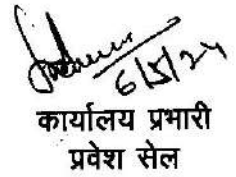 6/5/24
कार्यालय प्रभारी
प्रवेश सेल